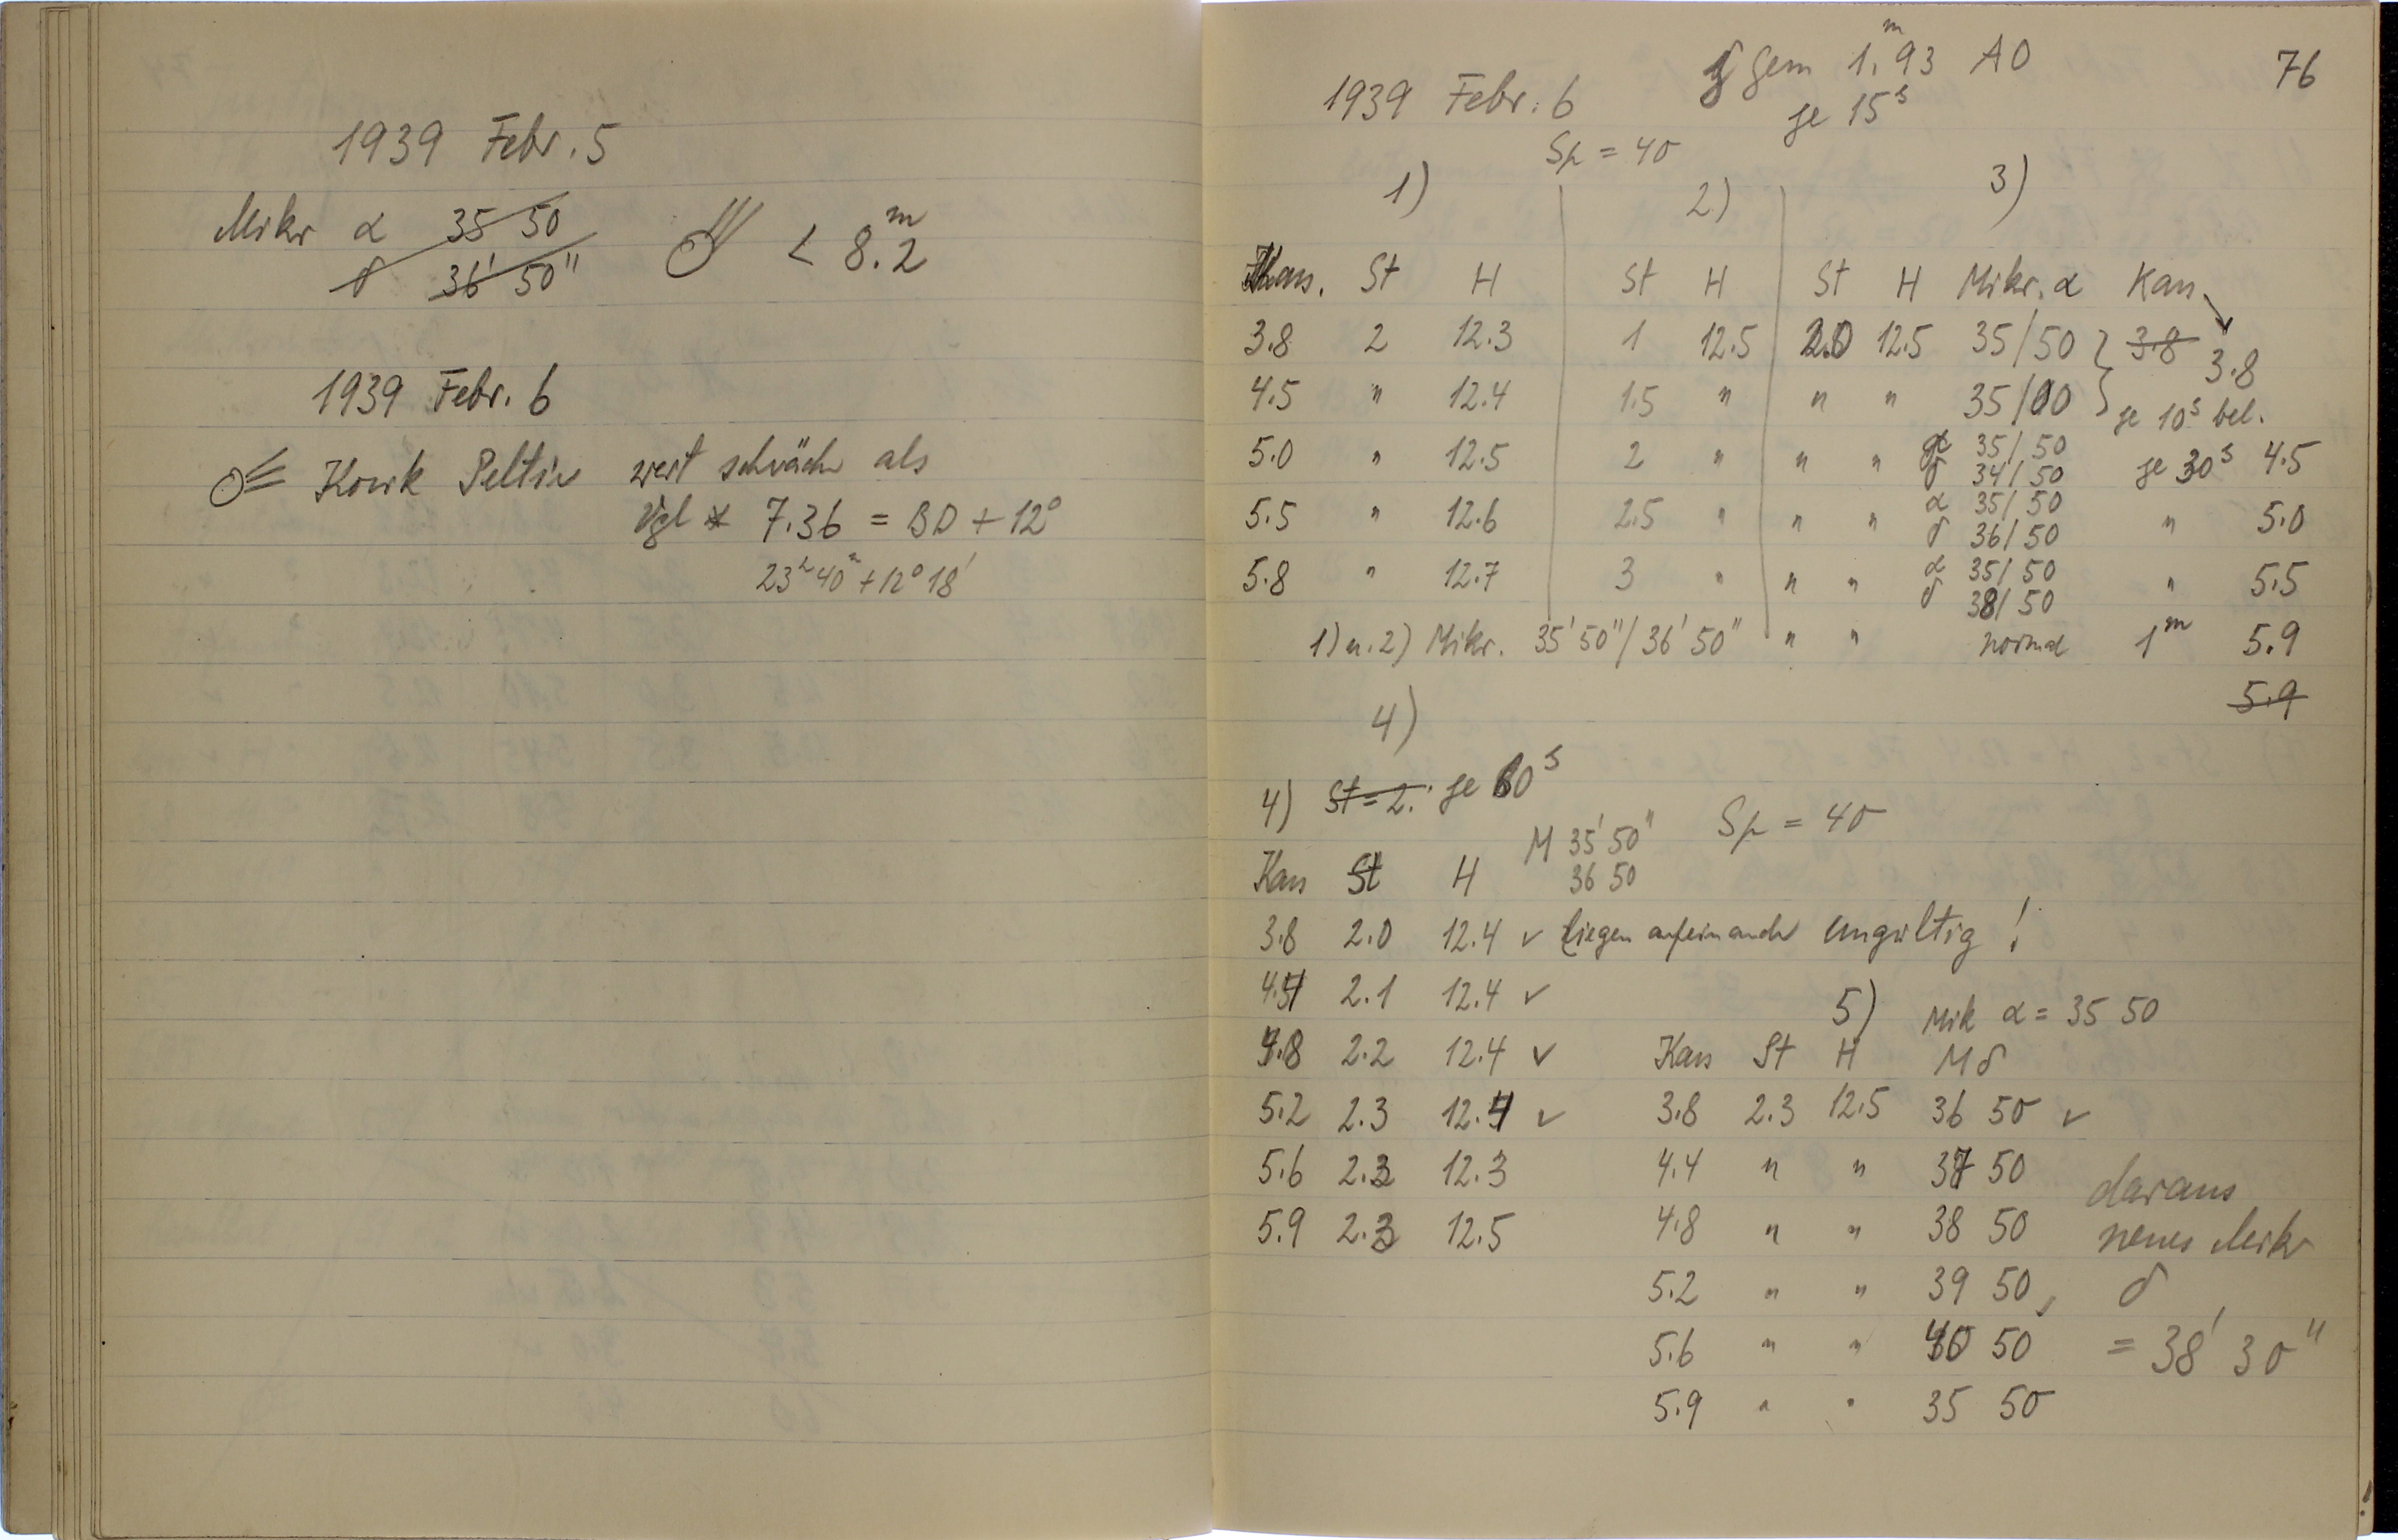 1939 Febr. 5
Mikr α 35 50
δ 36' 50"
☄ < 8.2 m
1939 Febr. 6
☄ Kosik Peltier weit schwäch als
Vgl * 7.36 = BD + 12°
23h 40m + 12° 18'
76
γ Gem 1.m93 A0
1939 Febr. 6 je 15s
Sp = 40
1) 2) 3)
Kas. St H St H St H Mikr. α Kas
3.8 2 12.3 1 12.5 2.0 12.5 35/50 } 3.8 3.8
4.5 " 12.4 1.5 " " " 35/00 } je 10s bel.
5.0 " 12.5 2 " " " α 35/50 je 30s 4.5
δ 34/50
5.5 " 12.6 2.5 " " " α 35/50 " 5.0
δ 36/50
5.8 " 12.7 3 " " " α 35/50 " 5.5
δ 38/50
1) u. 2) Mikr. 35' 50"/36' 50" " " normal 1m 5.9
5.9
4)
4) St = 2. je 60s
M 35' 50" Sp = 40
Kas St H 36 50
3.8 2.0 12.4 ✓ liegen aufeinander ungültig!
4.4 2.1 12.4 ✓
4.8 2.2 12.4 ✓
5.2 2.3 12.4 ✓
5.6 2.3 12.3
5.9 2.3 12.5
5) Mik α = 35 50
Kas St H M δ
3.8 2.3 12.5 36 50 ✓
4.4 " " 37 50
4.8 " " 38 50
5.2 " " 39 50
5.6 " " 40 50
5.9 " " 35 50
daraus
neues Mikr
δ
= 38' 30"